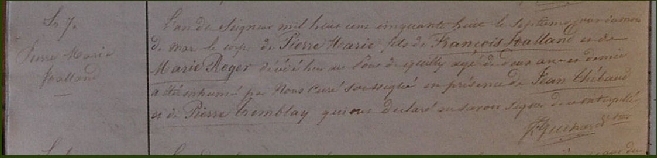 Le 7.
Pierre Marie
Foalland
L'an du Seigneur mil huit cent cinquante huit le septième jour du mois
de mai le corps de Pierre Marie fils de François Foalland et de
Marie Royer décédé hier au bourg de quilly agé de deux ans et demie
a été inhumé par Nous Curé soussigné en présence de Jean Thébaud
et de Pierre Tremblay qui ont déclaré ne savoir signer de ce interpellés